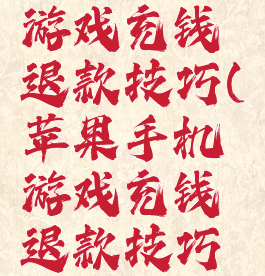 游戏充钱
退款技巧(
苹果手机
游戏充钱
退款技巧